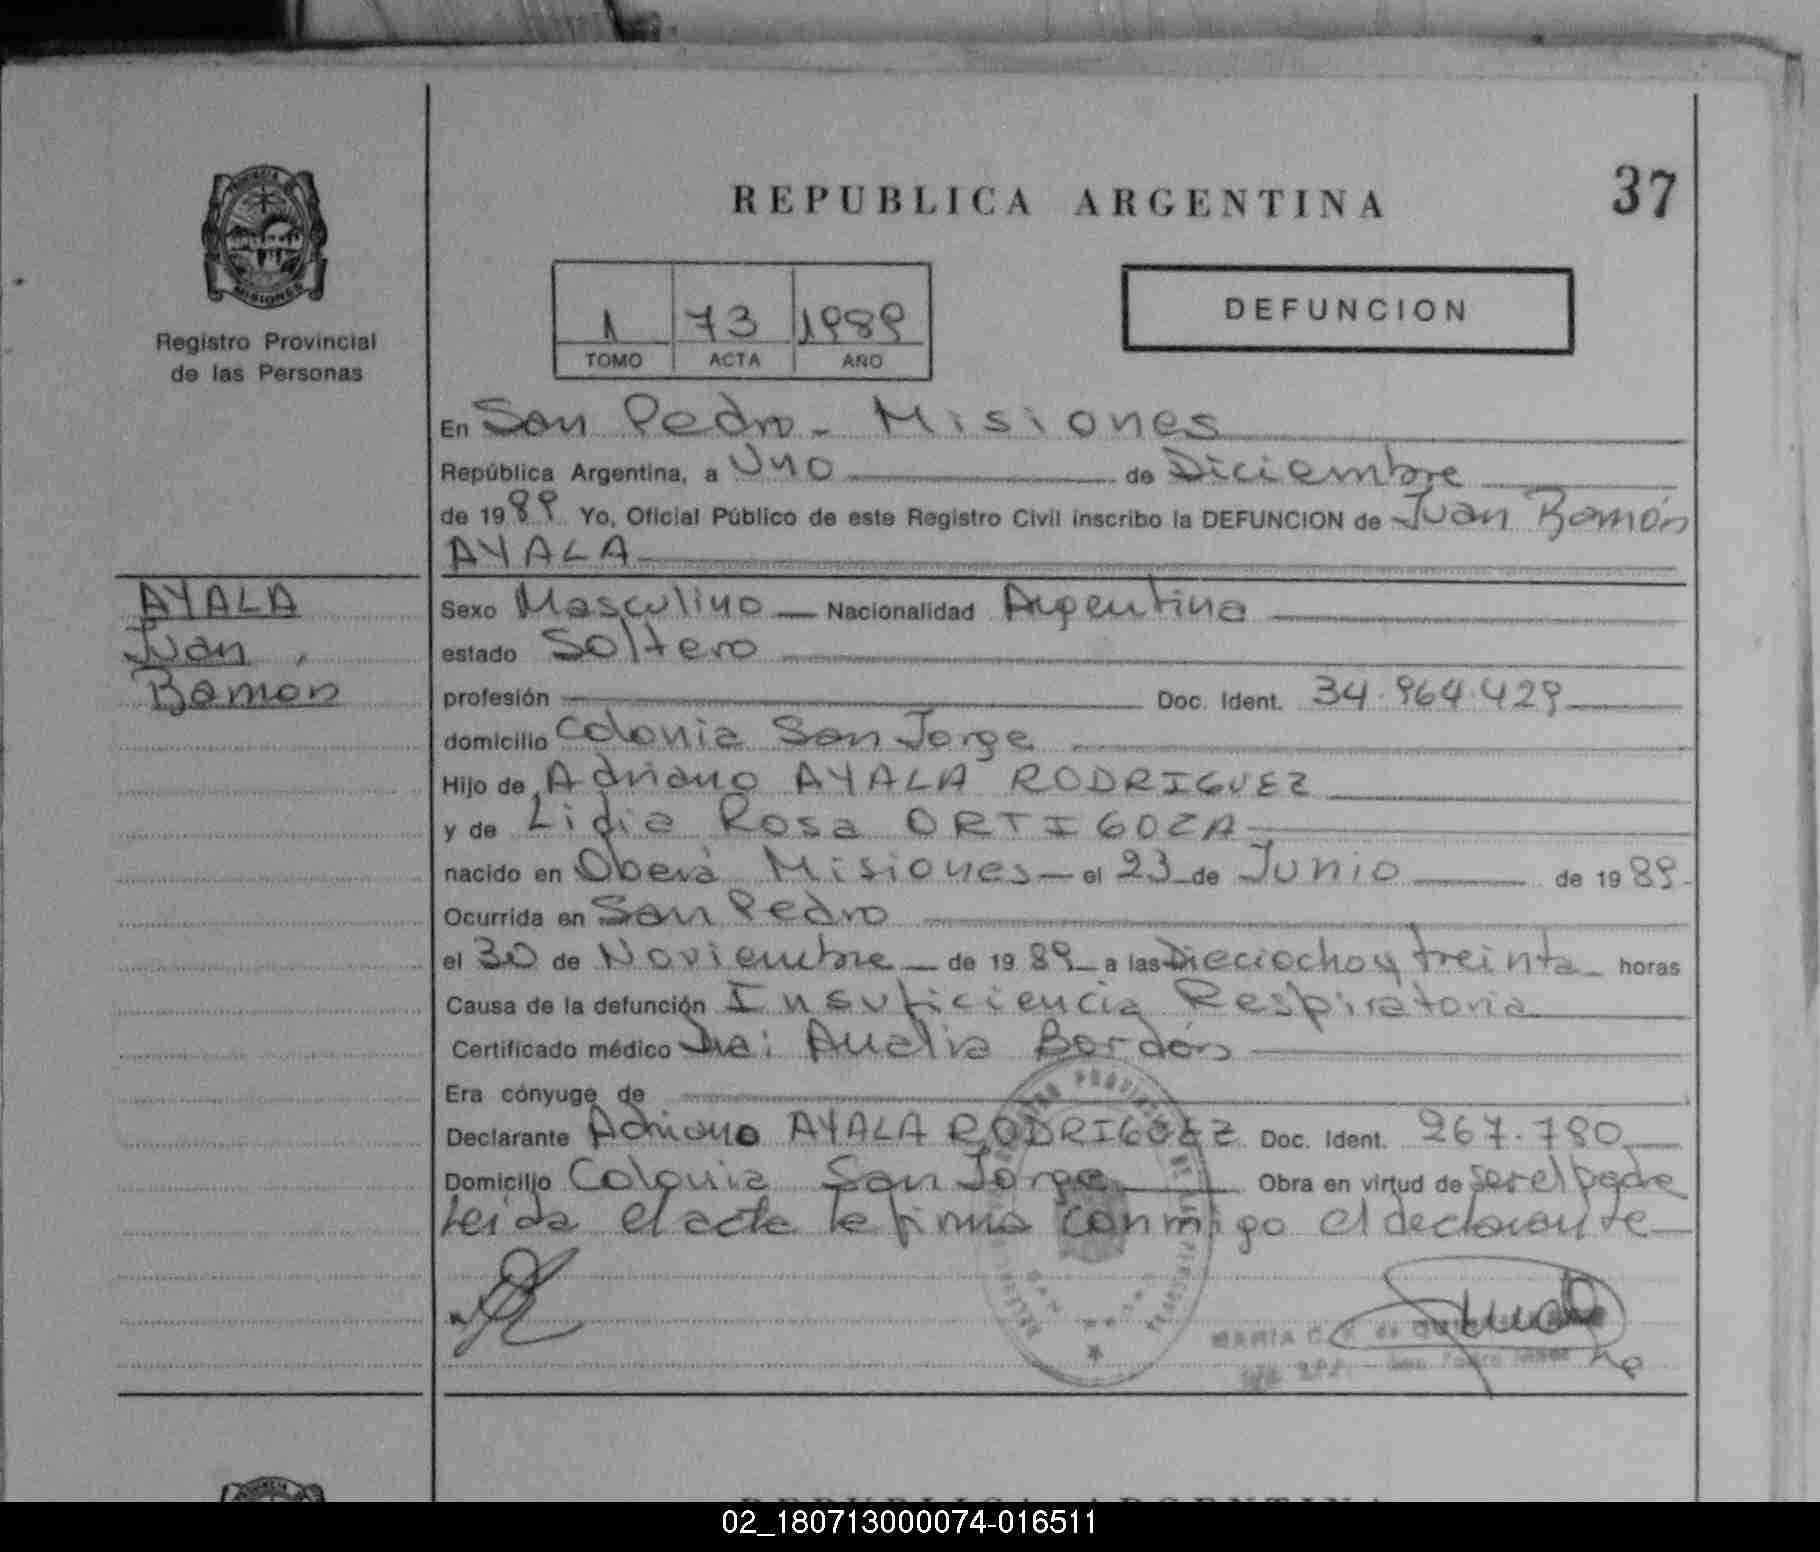 REPUBLICA ARGENTINA
37
PROVINCIA DE
MISIONES
Registro Provincial
de las Personas
1 73 1989
TOMO ACTA AÑO
DEFUNCION
En San Pedro - Misiones
República Argentina, a Uno de Diciembre
de 1989 Yo, Oficial Público de este Registro Civil inscribo la DEFUNCION de Juan Ramón
AYALA
AYALA
Juan,
Ramon
Sexo Masculino Nacionalidad Argentina
estado Soltero
profesión Doc. Ident. 34.964.429
domicilio Colonia San Jorge
Hijo de Adriano AYALA RODRIGUEZ
y de Lidia Rosa ORTIGOZA
nacido en Oberá Misiones el 23 de Junio de 1989
Ocurrida en San Pedro
el 30 de Noviembre de 1989 a las Dieciocho y treinta horas
Causa de la defunción Insuficiencia Respiratoria
Certificado médico Dra: Analia Bordón
Era cónyuge de
Declarante Adriano AYALA RODRIGUEZ Doc. Ident. 267.780
Domicilio Colonia San Jorge Obra en virtud de ser el padre
Leida el acta la firma conmigo el declarante
MARIA C.
02_180713000074-016511